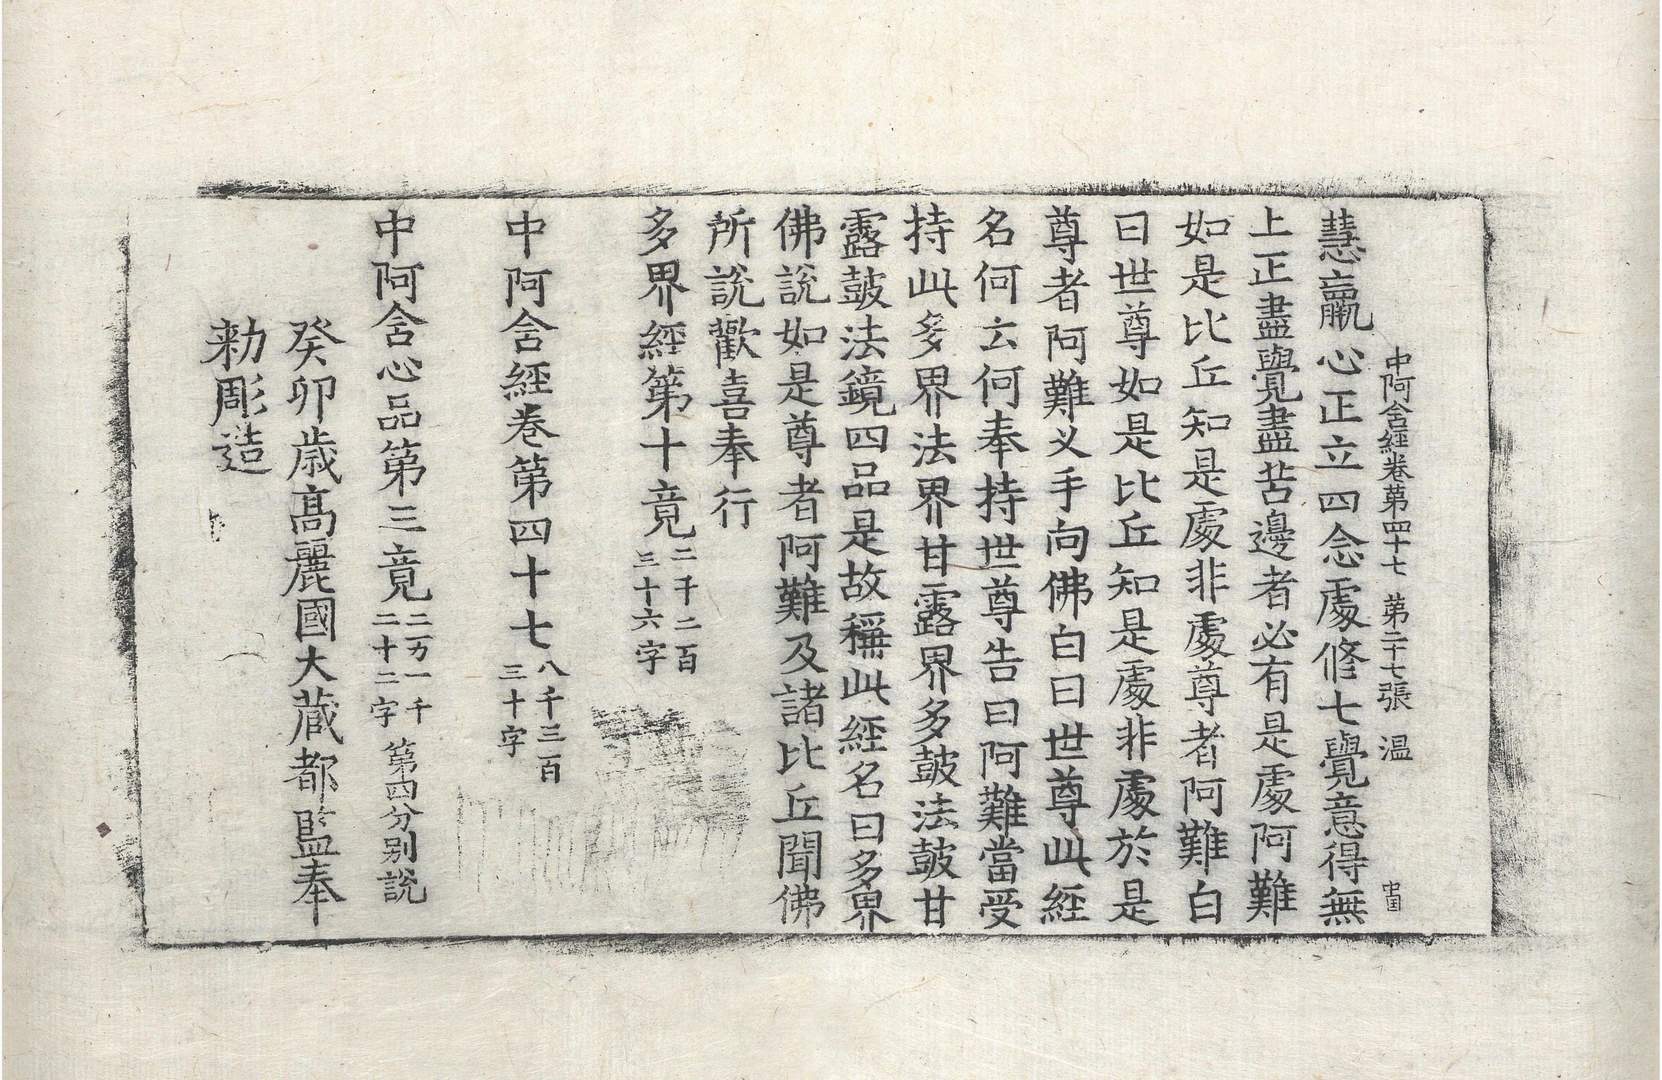 中阿含經卷第四十七 第二十七張 温
慧羸心正立四念處修七覺意得無
上正盡覺盡苦邊者必有是處阿難
如是比丘知是處非處尊者阿難白
曰世尊如是比丘知是處非處於是
尊者阿難叉手向佛白曰世尊此經
名何云何奉持世尊告曰阿難當受
持此多界法界甘露界多鼓法鼓甘
露鼓法鏡四品是故稱此經名曰多界
佛說如是尊者阿難及諸比丘聞佛
所說歡喜奉行
多界經第十竟二千二百三十六字
中阿含經卷第四十七八千三百三十字
中阿含心品第三竟二万一千二十二字 第四分別說
癸卯歲高麗國大藏都監奉
勅彫造